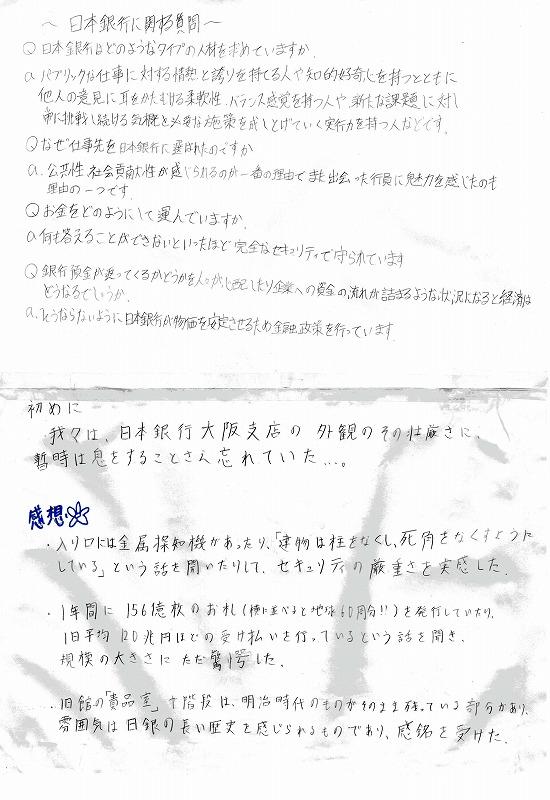 ～ 日本銀行に関する質問～
Q 日本銀行はどのようなタイプの人材を求めていますか.
a. パブリックな仕事に対する情熱と誇りを持てる人や知的好奇心を持つとともに
他人の意見に耳をかたむける柔軟性、バランス感覚を持つ人や、新たな課題に対し
常に挑戦し続ける気概と必要な施策を成しとげていく実行力を持つ人などです.
Qなぜ仕事先を日本銀行に選ばれたのですか
a. 公共性、社会貢献性が感じられるのが一番の理由で、また出会った行員に魅力を感じたのも
理由の一つです.
Q お金をどのようにして運んでいますか.
a. 何も答えることができないといったほど完全なセキュリティで守られています
Q 銀行預金が返ってくるかどうかを人々が心配したり企業への資金の流れが詰まるような状況になると経済は
どうなるでしょうか.
a. そうならないように日本銀行が物価を安定させるため金融政策を行っています.
初めに
我々は、日本銀行大阪支店の外観のその壮厳さに、
暫時は息をすることさえ忘れていた…。
感想
・入り口には金属探知機があったり、「建物は柱をなくし、死角をなくすように
している」という話を聞いたりして、セキュリティの厳重さを実感した.
・1年間に156億枚のお札(横に並べると地球60周分!!)を発行していたり、
1日平均120兆円ほどの受け払いを行っているという話を聞き、
規模の大きさにただ驚く号した.
・旧館の「貴品室」や階段は、明治時代のものがそのまま残っている部分があり、
雰囲気は日銀の長い歴史を感じられるものであり、感銘を受けた.